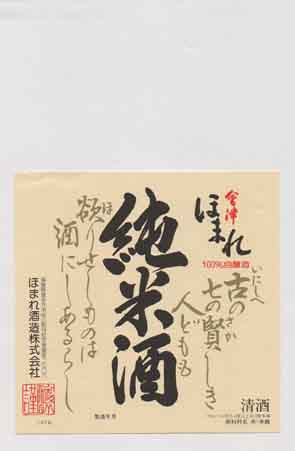 會津
ほまれ
100%自醸酒
純米酒
古の
いにしへ
七の賢しき
さか
人どもも
欲りせしものは
ほ
酒にしあるらし
清酒
原材料名 米・米麹
製造年月
ほまれ酒造株式会社